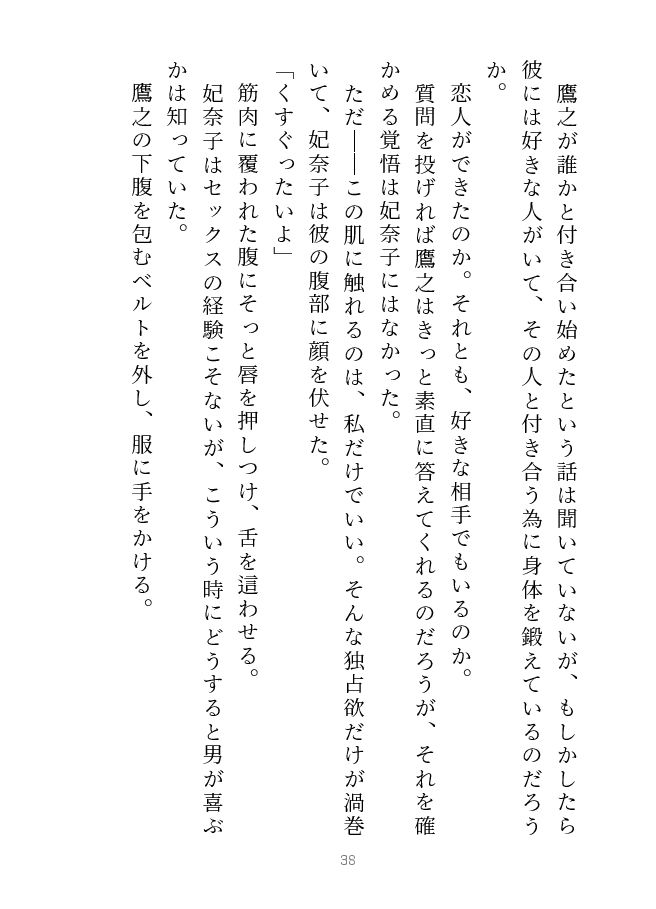 鷹之が誰かと付き合い始めたという話は聞いていないが、もしかしたら
彼には好きな人がいて、その人と付き合う為に身体を鍛えているのだろう
か。
恋人ができたのか。それとも、好きな相手でもいるのか。
質問を投げれば鷹之はきっと素直に答えてくれるのだろうが、それを確
かめる覚悟は妃奈子にはなかった。
ただ――この肌に触れるのは、私だけでいい。そんな独占欲だけが渦巻
いて、妃奈子は彼の腹部に顔を伏せた。
「くすぐったいよ」
筋肉に覆われた腹にそっと唇を押しつけ、舌を這わせる。
妃奈子はセックスの経験こそないが、こういう時にどうすると男が喜ぶ
かは知っていた。
鷹之の下腹を包むベルトを外し、服に手をかける。
38